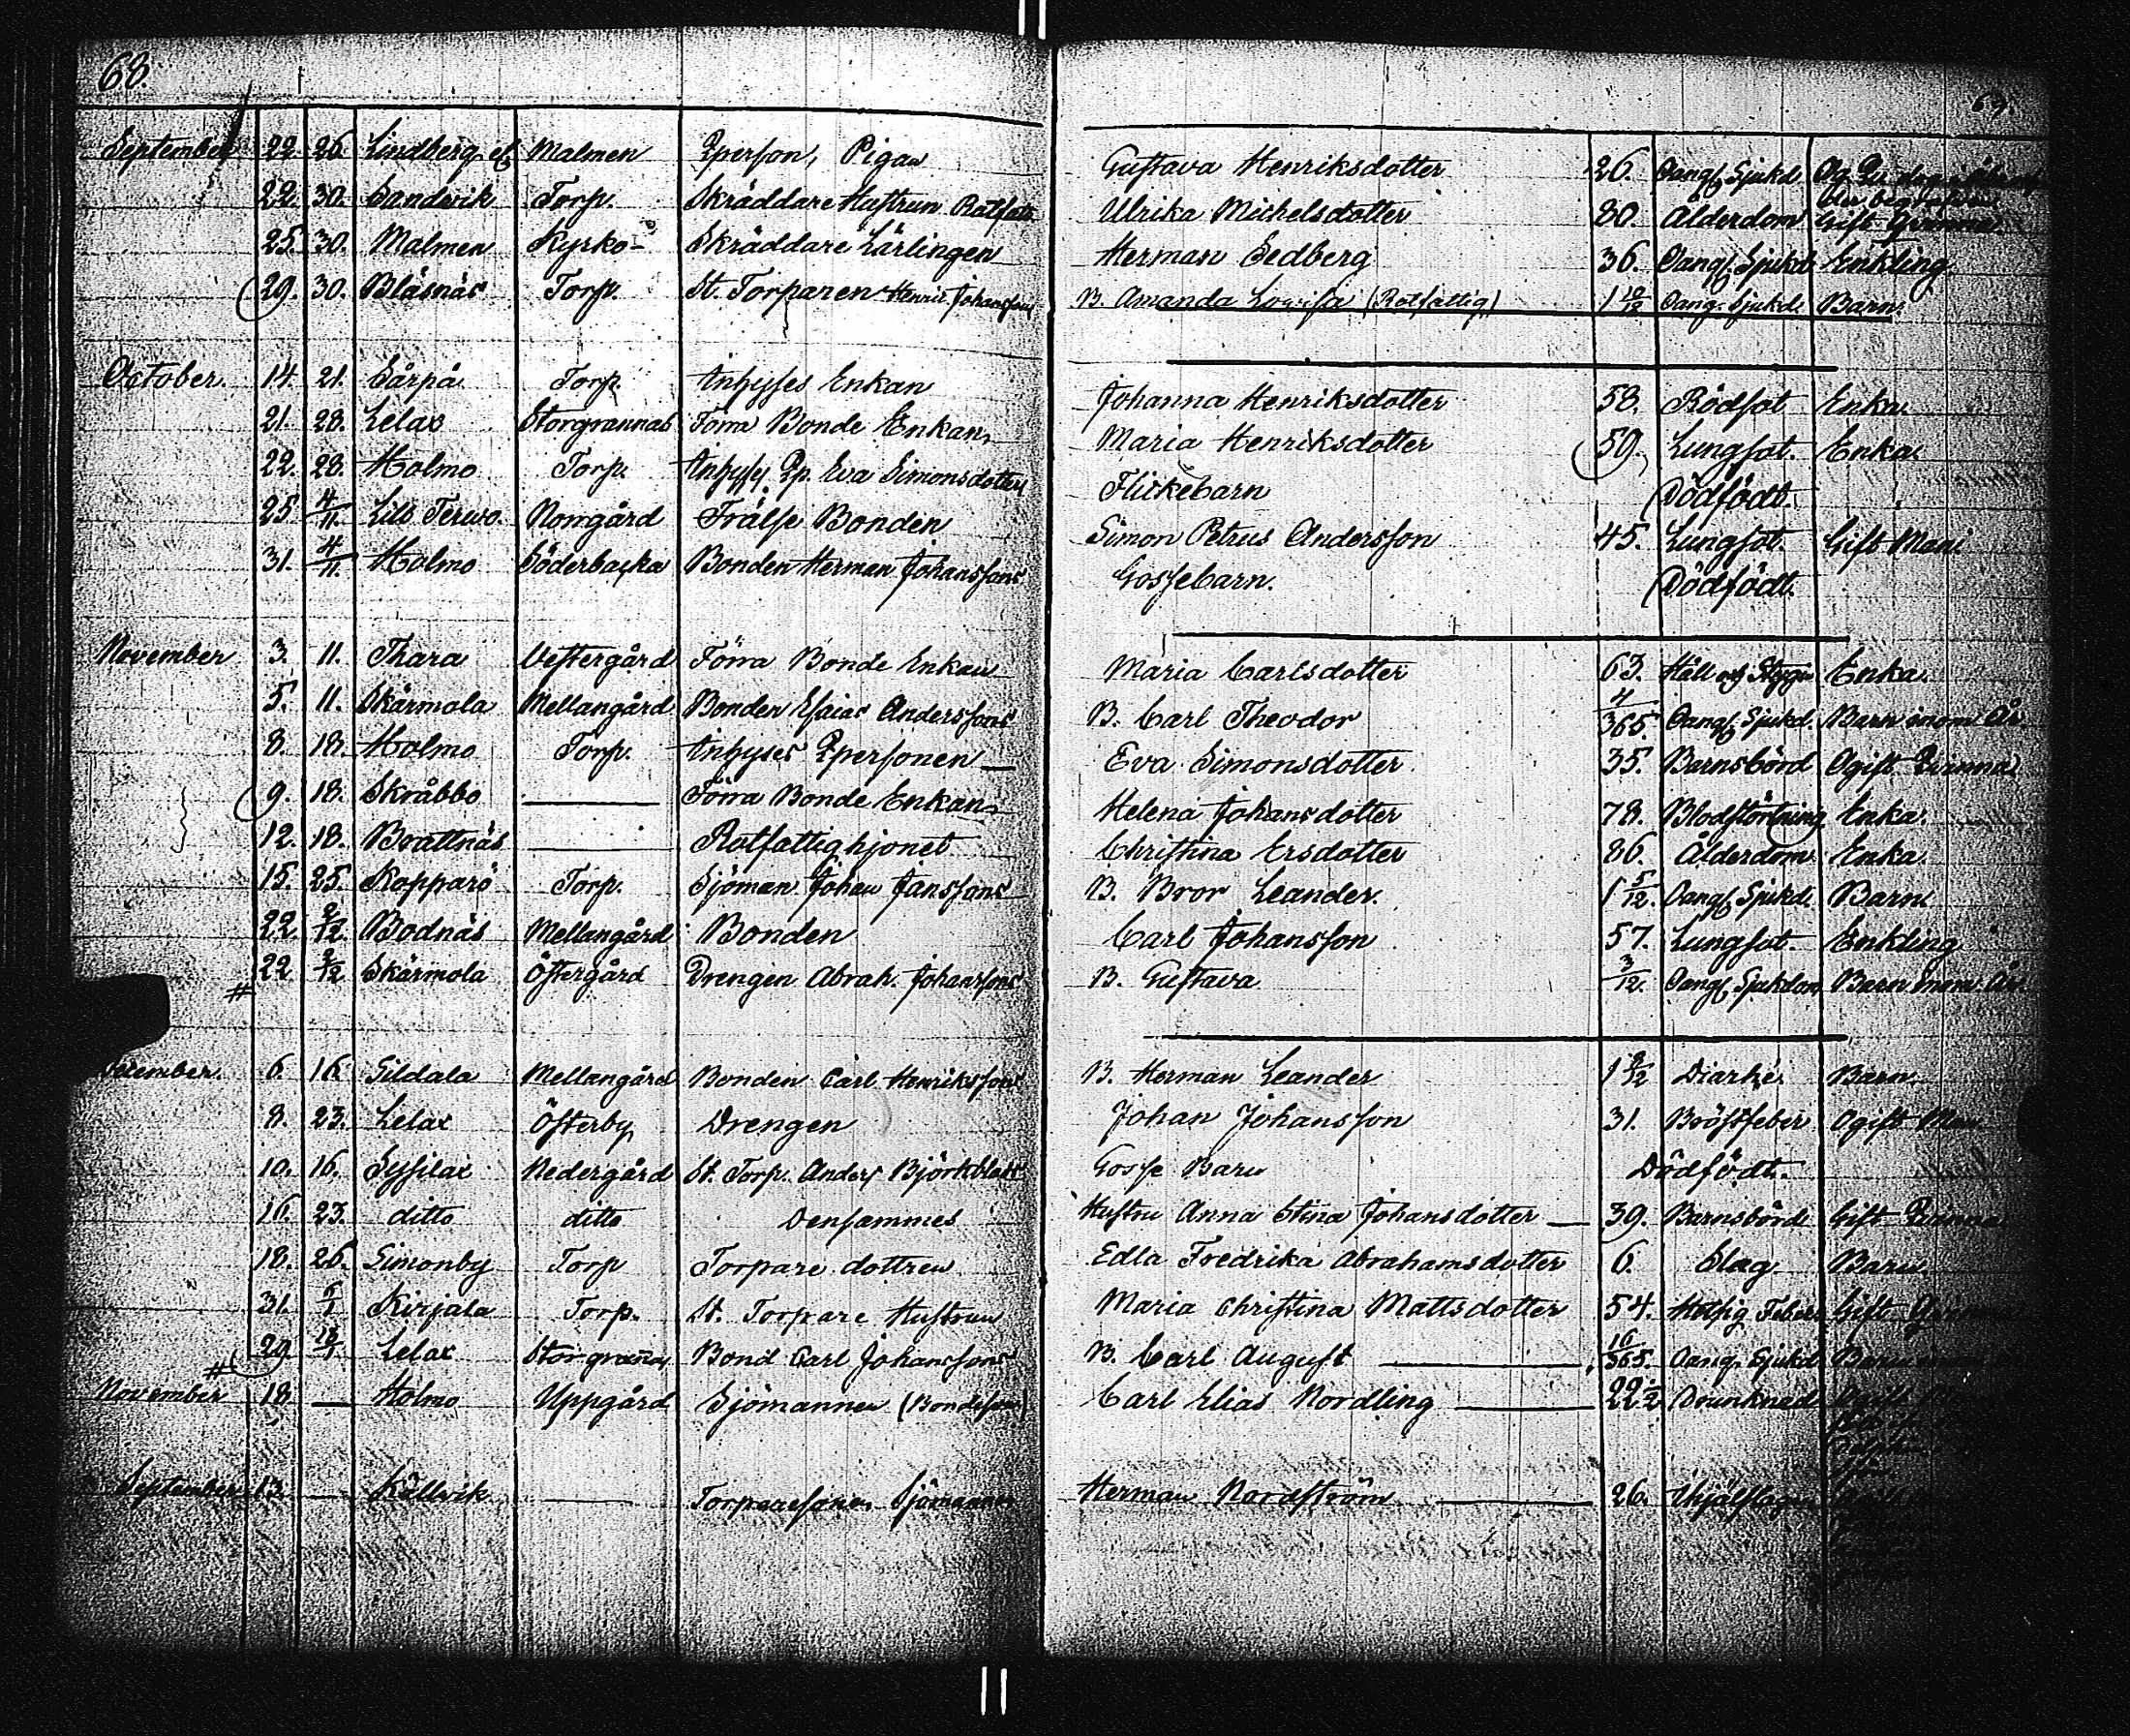 68.
69.
September 22. 26. Lindberg Malmen Qperson, Pigan Gustava Henriksdotter 26. Oangf. Sjukd.
22. 30. Sandvik Torp. Skräddare Hustrun Rotfatt. Ulrika Michelsdotter 80. Ålderdom Gift Qvinna.
25. 30. Malmen Kyrko- Skräddare Lärlingen Herman Sedberg 36. Oangf. Sjukd. Enkling
29. 30. Bläsnäs Torp. St. Torparen Henric Johanssons B. Amanda Lovisa (Rotfattig) 1 10/12 Oang. Sjukd. Barn.
October. 14. 21. Sårpä Torp. Inhyses Enkan Johanna Henriksdotter 58. Rödsot Enka.
21. 28. Lelax Storgrannas Förra Bonde Enkan Maria Henriksdotter 59. Lungsot. Enka.
22. 28. Holmo Torp. Inhyses Qp. Eva Simonsdotters Flickebarn Dödfödt.
25 4/11. Lill Terwo. Norrgård Frälse Bonden Simon Petrus Andersson 45. Lungsot. Gift Man
31. 4/11. Holmo Söderbacka Bonden Herman Johanssons Gossebarn. Dödfödt.
November 3. 11. Thara Vestergård Förra Bonde Enkan Maria Carlsdotter 63. Håll och Stygn Enka.
5. 11. Skärmola Mellangård Bonden Esaias Anderssons B. Carl Theodor 4/365. Oangf. Sjukd. Barn inom År
8. 18. Holmo Torp. Inhyses Qpersonen Eva Simonsdotter 35. Barnsbörd Ogift Qvinna
9. 18. Skråbbo Förra Bonde Enkan Helena Johansdotter 78. Blodstörtning Enka.
12. 18. Brattnäs Rotfattighjonet Christina Ersdotter 86. Ålderdom Enka.
15. 25. Kopparö Torp. Sjöman Johan Janssons B. Bror Leander. 1 5/12. Oangf. Sjukd. Barn
22 2/12 Bodnäs Mellangård Bonden Carl Johansson 57. Lungsot. Enkling
# 22 2/12 Skärmola Östergård Drengen Abrah. Johanssons B. Gustava 3/12. Oangf. Sjukdom Barn inom År.
December. 6. 16. Gildala Mellangård Bonden Carl Henrikssons B. Herman Leander Diarhé. Barn.
8. 23. Lelax Österby Drengen Johan Johansson 31. Bröstfeber Ogift Man
10. 16. Sysilax Nedergård St. Torp. Anders Björkblads Gosse Barn Dödfödt.
16. 23. ditto ditto Densammes Hustru Anna Stina Johansdotter 39. Barnsbörd Gift Qvinna.
18. 26. Simonby Torp Torpare dottren Edla Fredrika Abrahamsdotter 6. Slag Barn.
31. 6/1 Kirjala Torp. St. Torpare Hustrun Maria Christina Mattsdotter 54. Hetsig Feber Gift
# 29 Lelax Storgrannas Bond. Carl Johanssons B. Carl August 16/365. Oang. Sjukd. Barn
November 18 — Holmo Uppgård Sjömannen (Bondeson) Carl Elias Nordling 22 Drunknad Ogift
September 13. — Källvik Torparesonen Sjömannen Herman Nordström 26. Ihjälslagen